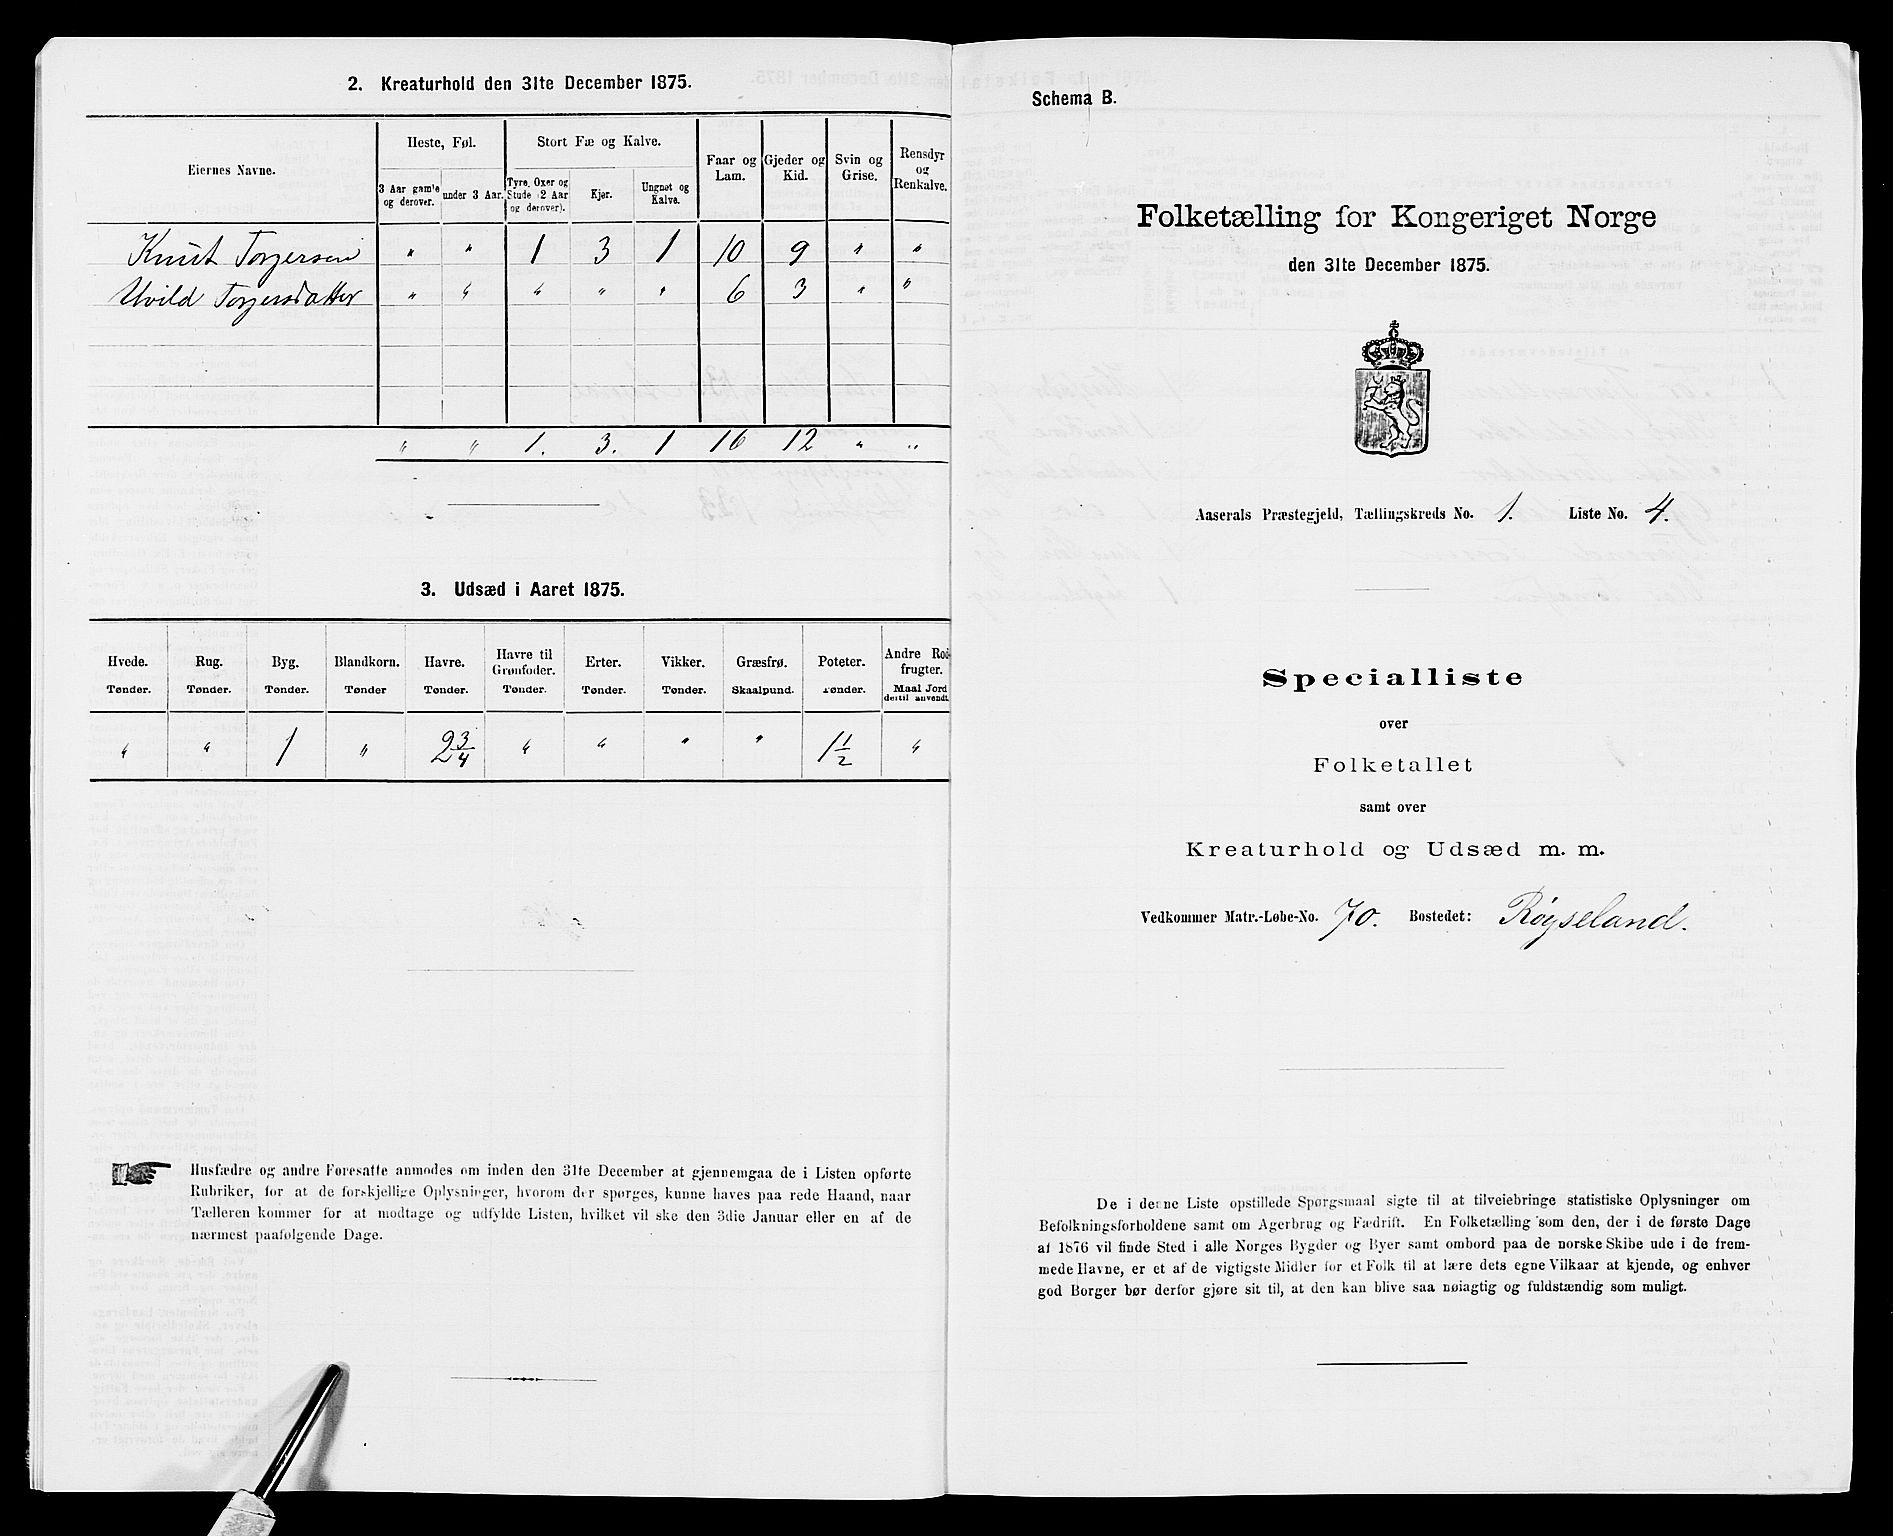 2. Kreaturhold den 31te December 1875.
Eiernes Navne.
Heste, Føl.
Stort Fæ og Kalve.
Faar og Lam.
Gjeder og Kid.
Svin og Grise.
Rensdyr og Renkalve.
3 Aar gamle og derover.
under 3 Aar.
Tyre, Oxer og Stude (2 Aar og derover).
Kjør.
Ungnøt og Kalve.
Knut Torjersen " " 1 3 1 10 9 " "
Uvild Torjersdatter " " " " " 6 3 " "
" " 1. 3. 1 16 12 " "
3. Udsæd i Aaret 1875.
Hvede. Rug. Byg. Blandkorn. Havre. Havre til Grønfoder. Erter. Vikker. Græsfrø. Poteter. Andre Rodfrugter.
Tønder. Tønder. Tønder. Tønder Tønder. Tønder. Tønder. Tønder. Skaalpund. Tønder. Maal Jord dertil anvendt.
" " 1 " 2 3/4 " " " " 1 1/2 "
Husfædre og andre Foresatte anmodes om inden den 31te December at gjennemgaa de i Listen opførte
Rubriker, for at de forskjellige Oplysninger, hvorom der spørges, kunne haves paa rede Haand, naar
Tælleren kommer for at modtage og udfylde Listen, hvilket vil ske den 3die Januar eller en af de
nærmest paafølgende Dage.
Schema B.
Folketælling for Kongeriget Norge
den 31te December 1875.
Aaserals Præstegjeld, Tællingskreds No. 1. Liste No. 4.
Specialliste
over
Folketallet
samt over
Kreaturhold og Udsæd m. m.
Vedkommer Matr.-Løbe-No. 70. Bostedet: Røyseland.
De i denne Liste opstillede Spørgsmaal sigte til at tilveiebringe statistiske Oplysninger om
Befolkningsforholdene samt om Agerbrug og Fædrift. En Folketælling som den, der i de første Dage
af 1876 vil finde Sted i alle Norges Bygder og Byer samt ombord paa de norske Skibe ude i de frem-
mede Havne, er et af de vigtigste Midler for et Folk til at lære dets egne Vilkaar at kjende, og enhver
god Borger bør derfor gjøre sit til, at den kan blive saa nøiagtig og fuldstændig som muligt.